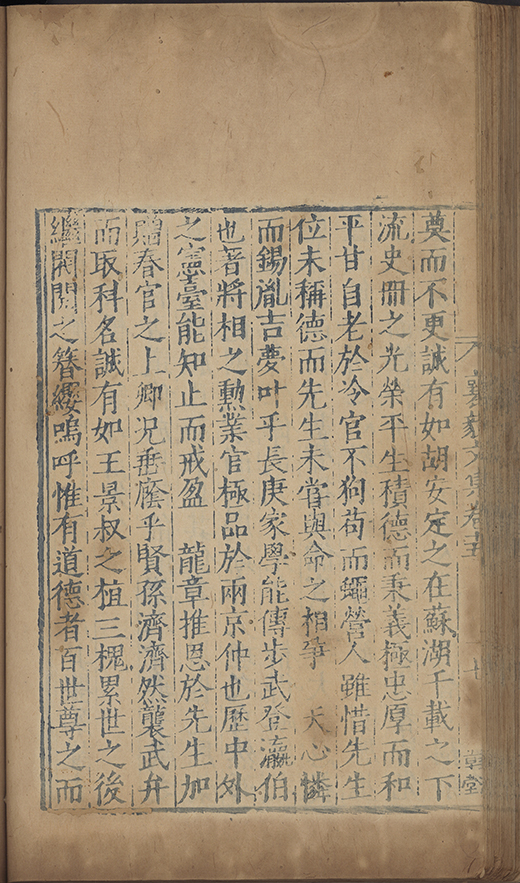 奠而不更誠有如胡安定之在蘇湖千載之下
流史冊之光榮平生積德而秉義極忠厚而和
平甘自老於冷官不狗苟而蠅營人雖惜先生
位未稱德而先生未嘗與命之相爭 天心憐
而錫胤吉夢叶乎長庚家學能傳步武登瀛伯
也著將相之勳業官極品於兩京仲也歷中外
之憲臺能知止而戒盈 龍章推恩於先生加
贈春官之上卿况垂廕乎賢孫濟濟然襲武弁
而取科名誠有如王景叔之植三槐累世之後
繼閥閱之簪纓嗚呼惟有道德者百世尊之而